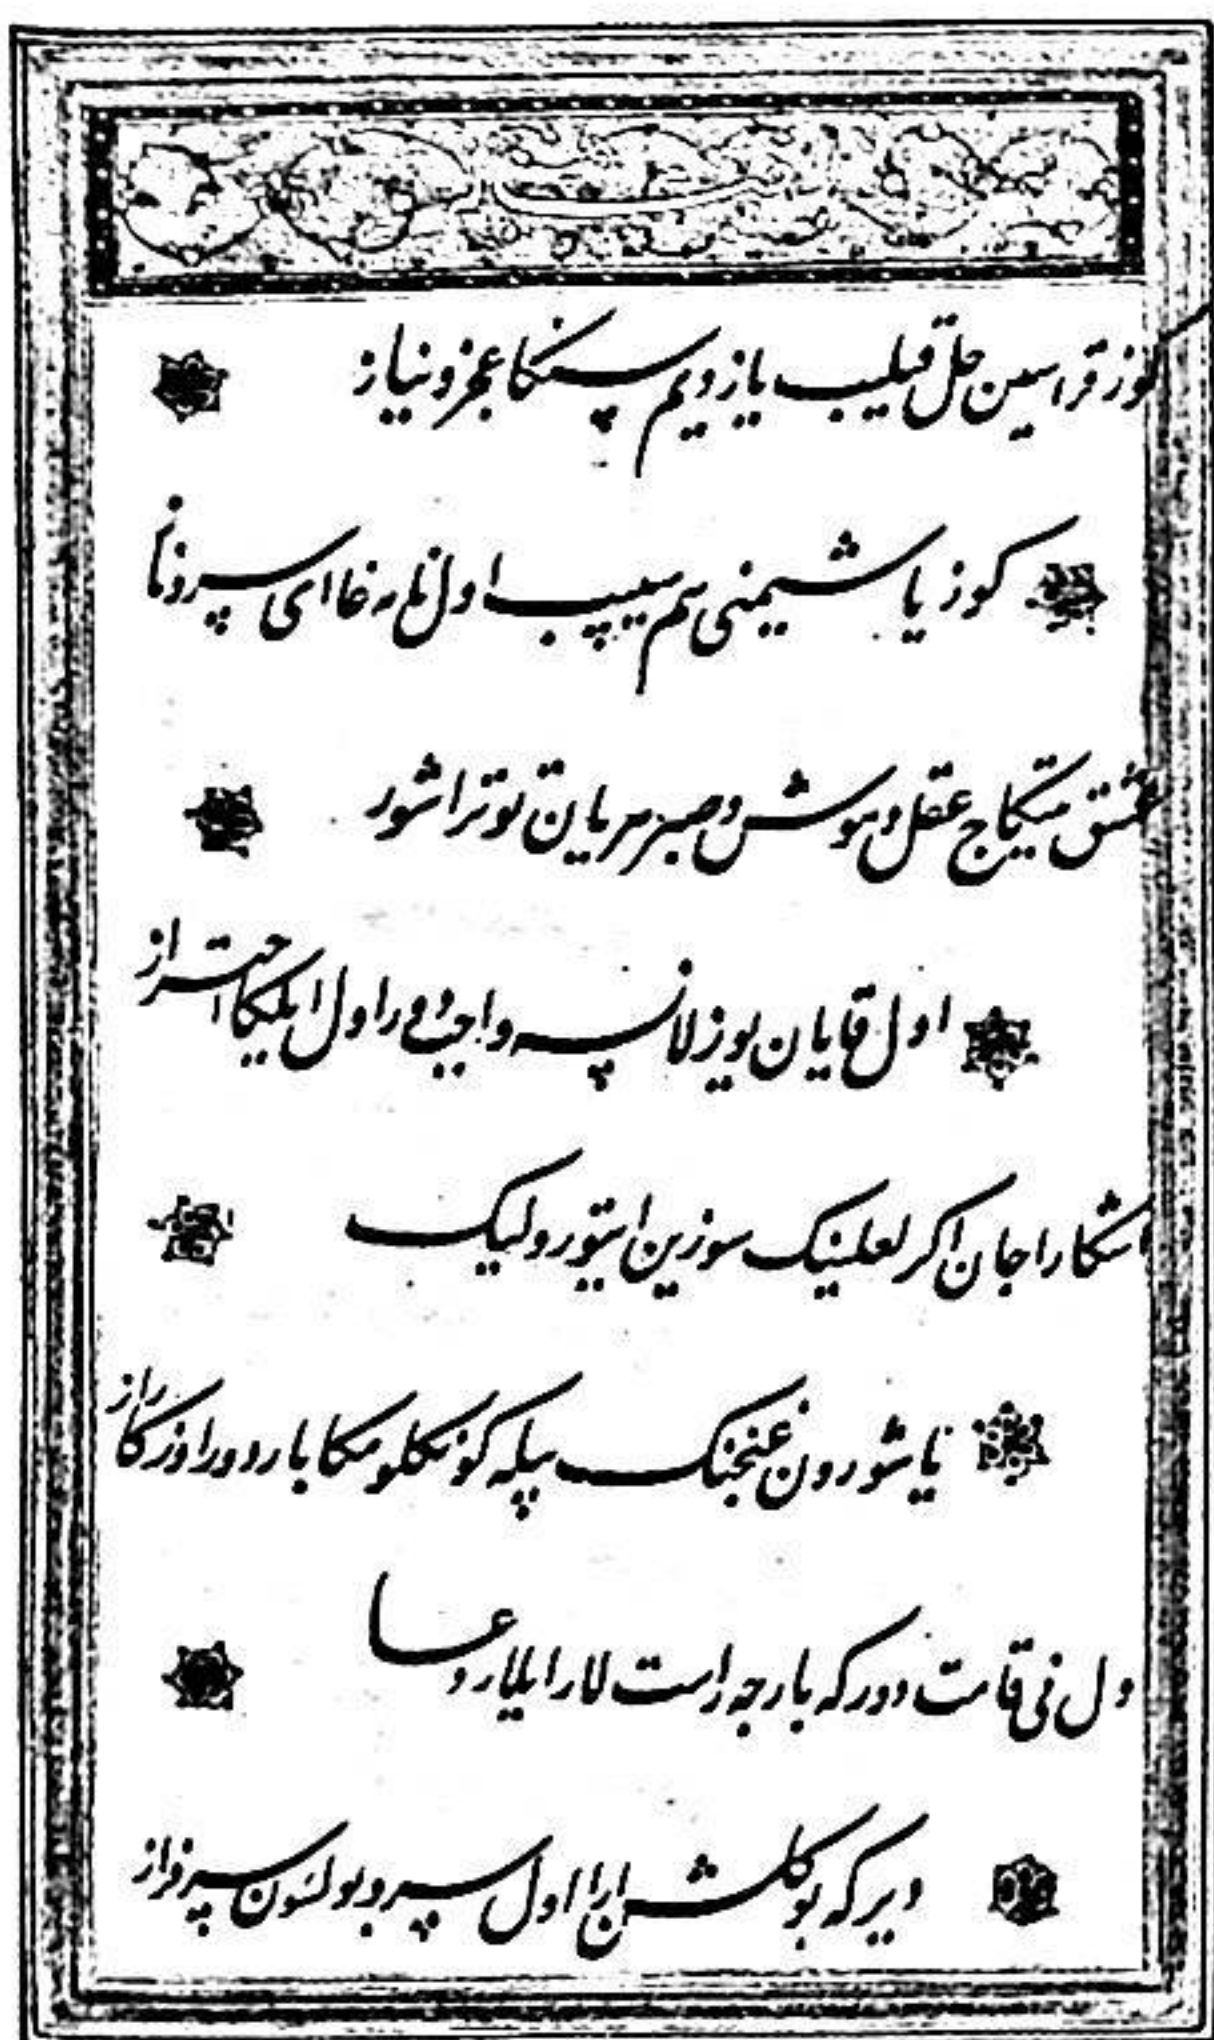 کوز قراسین حل قیلیب یازدیم سنکا عجز و نیاز
کوز یاشیمنی هم سیپیب اول نامه غا ای سرو ناز
عشق یتکاج عقل و هوش و صبر هر یان توتراشور
اول قایان یوزلانسه واجب دور اول ایلیکا احتراز
اشکارا جان اکر لعلینک سوزین ایتور ولیک
یاشورون غنجنک بیله کونکلومکا باردور اوزکا راز
ول نی قامت دورکه بارجه راست لار ایلار دعا
دیرکه بو کلشن ارا اول سرو بولسون سرفراز